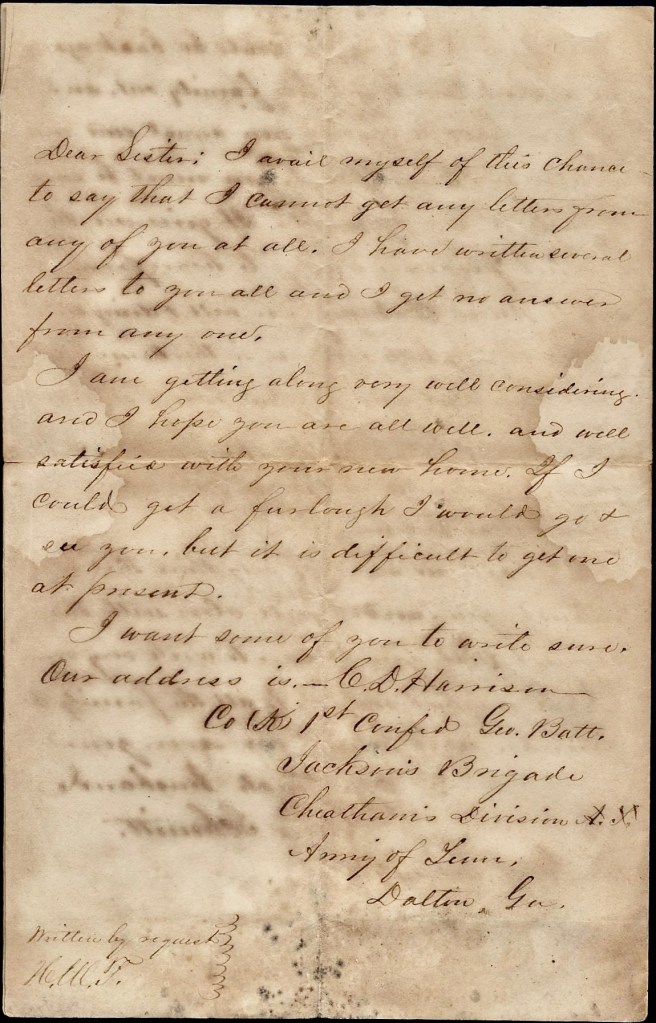 Dear Sister: I avail myself of this chance
to say that I cannot get any letters from
any of you at all. I have written several
letters to you all and I get no answer
from any one.
I am getting along very well considering.
and I hope you are all well. and well
satisfied with your new home. If I
could get a furlough I would go &
see you, but it is difficult to get one
at present.
I want some of you to write sure.
Our address is. — C. D. Harrison
Co K 1st Confed Geo. Batt.
Jackson's Brigade
Cheatham's Division
Army of Tenn.
Dalton, Ga.
Written by request